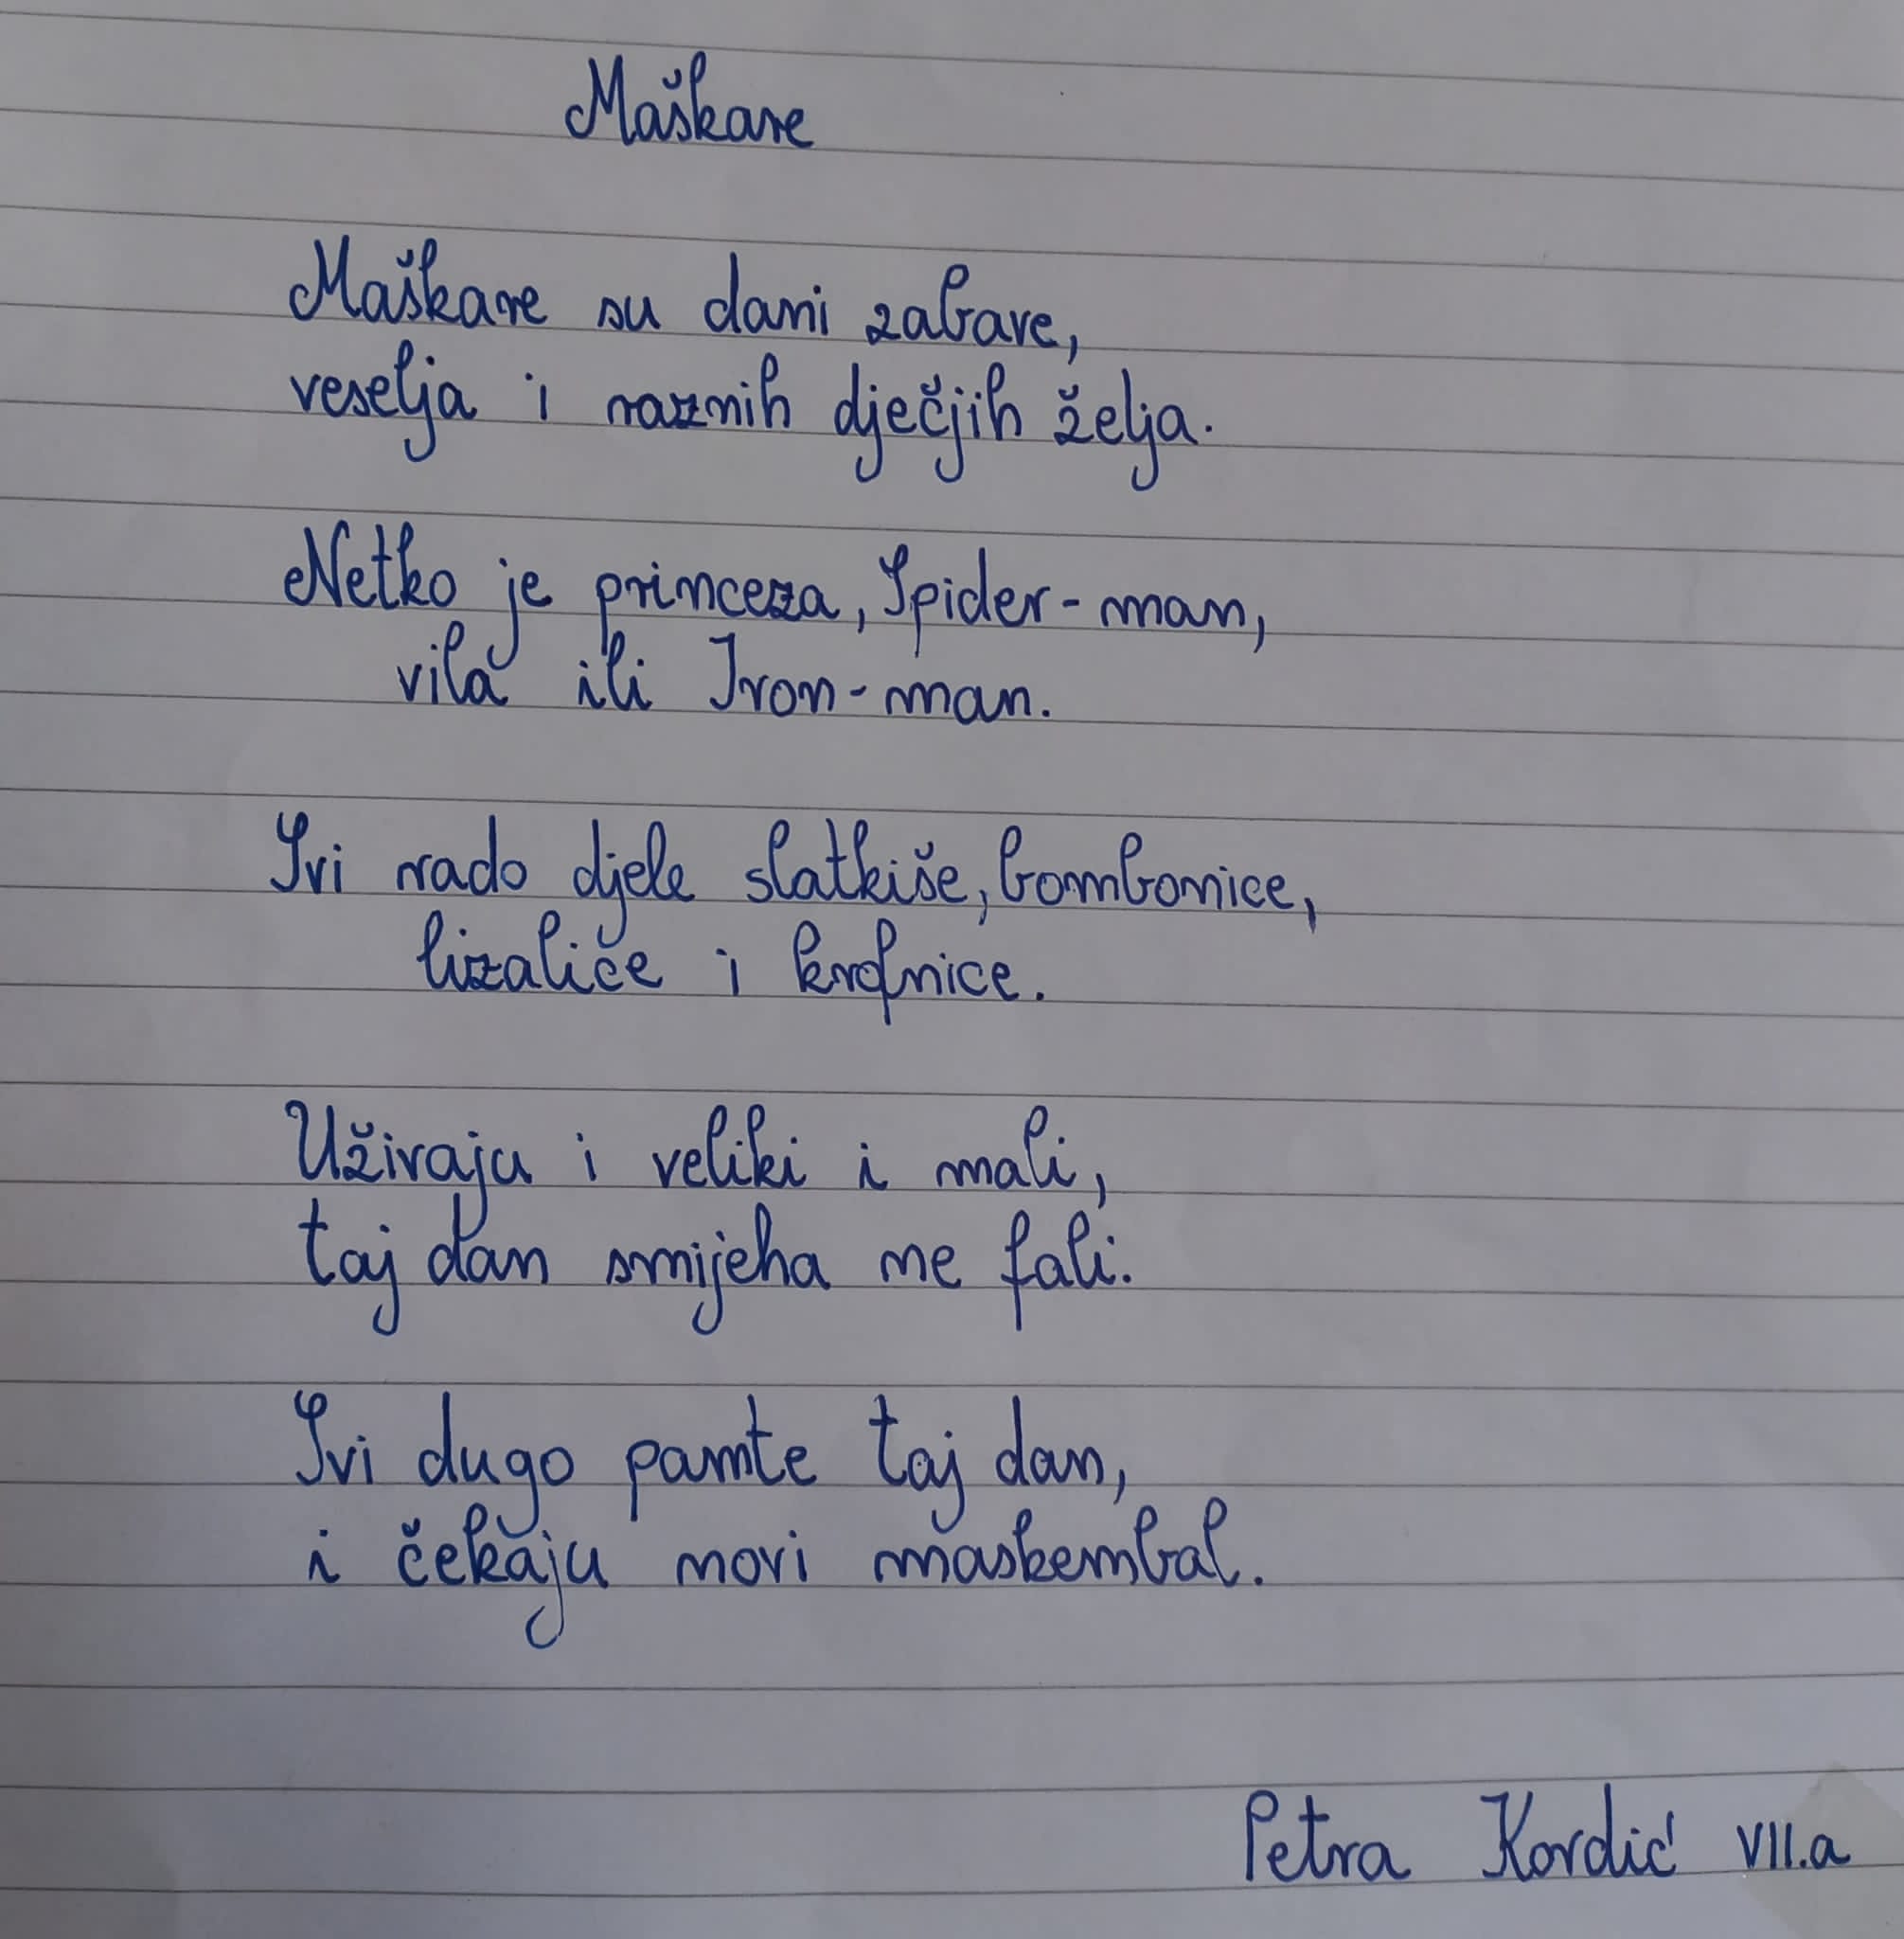 Maškare
Maškare su dani zabave,
veselja i raznih dječjih želja.
Netko je princeza, Spider-man,
vila ili Iron-man.
Svi rado djele slatkiše, bombonice,
lizaliće i krofnice.
Uživaju i veliki i mali,
taj dan smijeha ne fali.
Svi dugo pamte taj dan,
i čekaju novi maskembal.
Petra Kordić VII.a